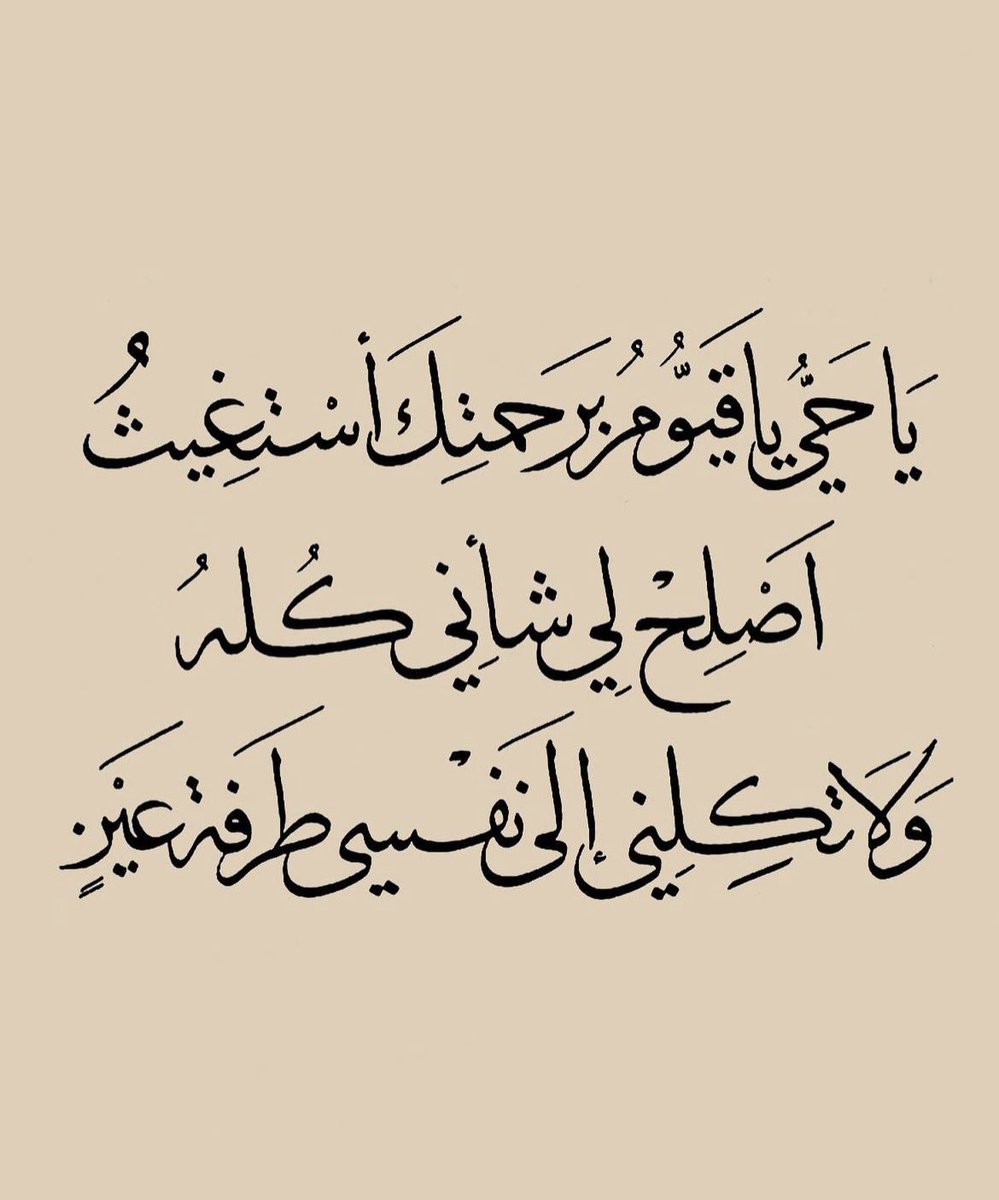 يَا حَيُّ يا قَيُّومُ بِرَحمتِكَ أَسْتغِيثُ
اَصْلِحْ لِي شأنِي كُلهُ
وَلَا تَكِلِني إلى نَفْسي طَرفة عَيْنٍ